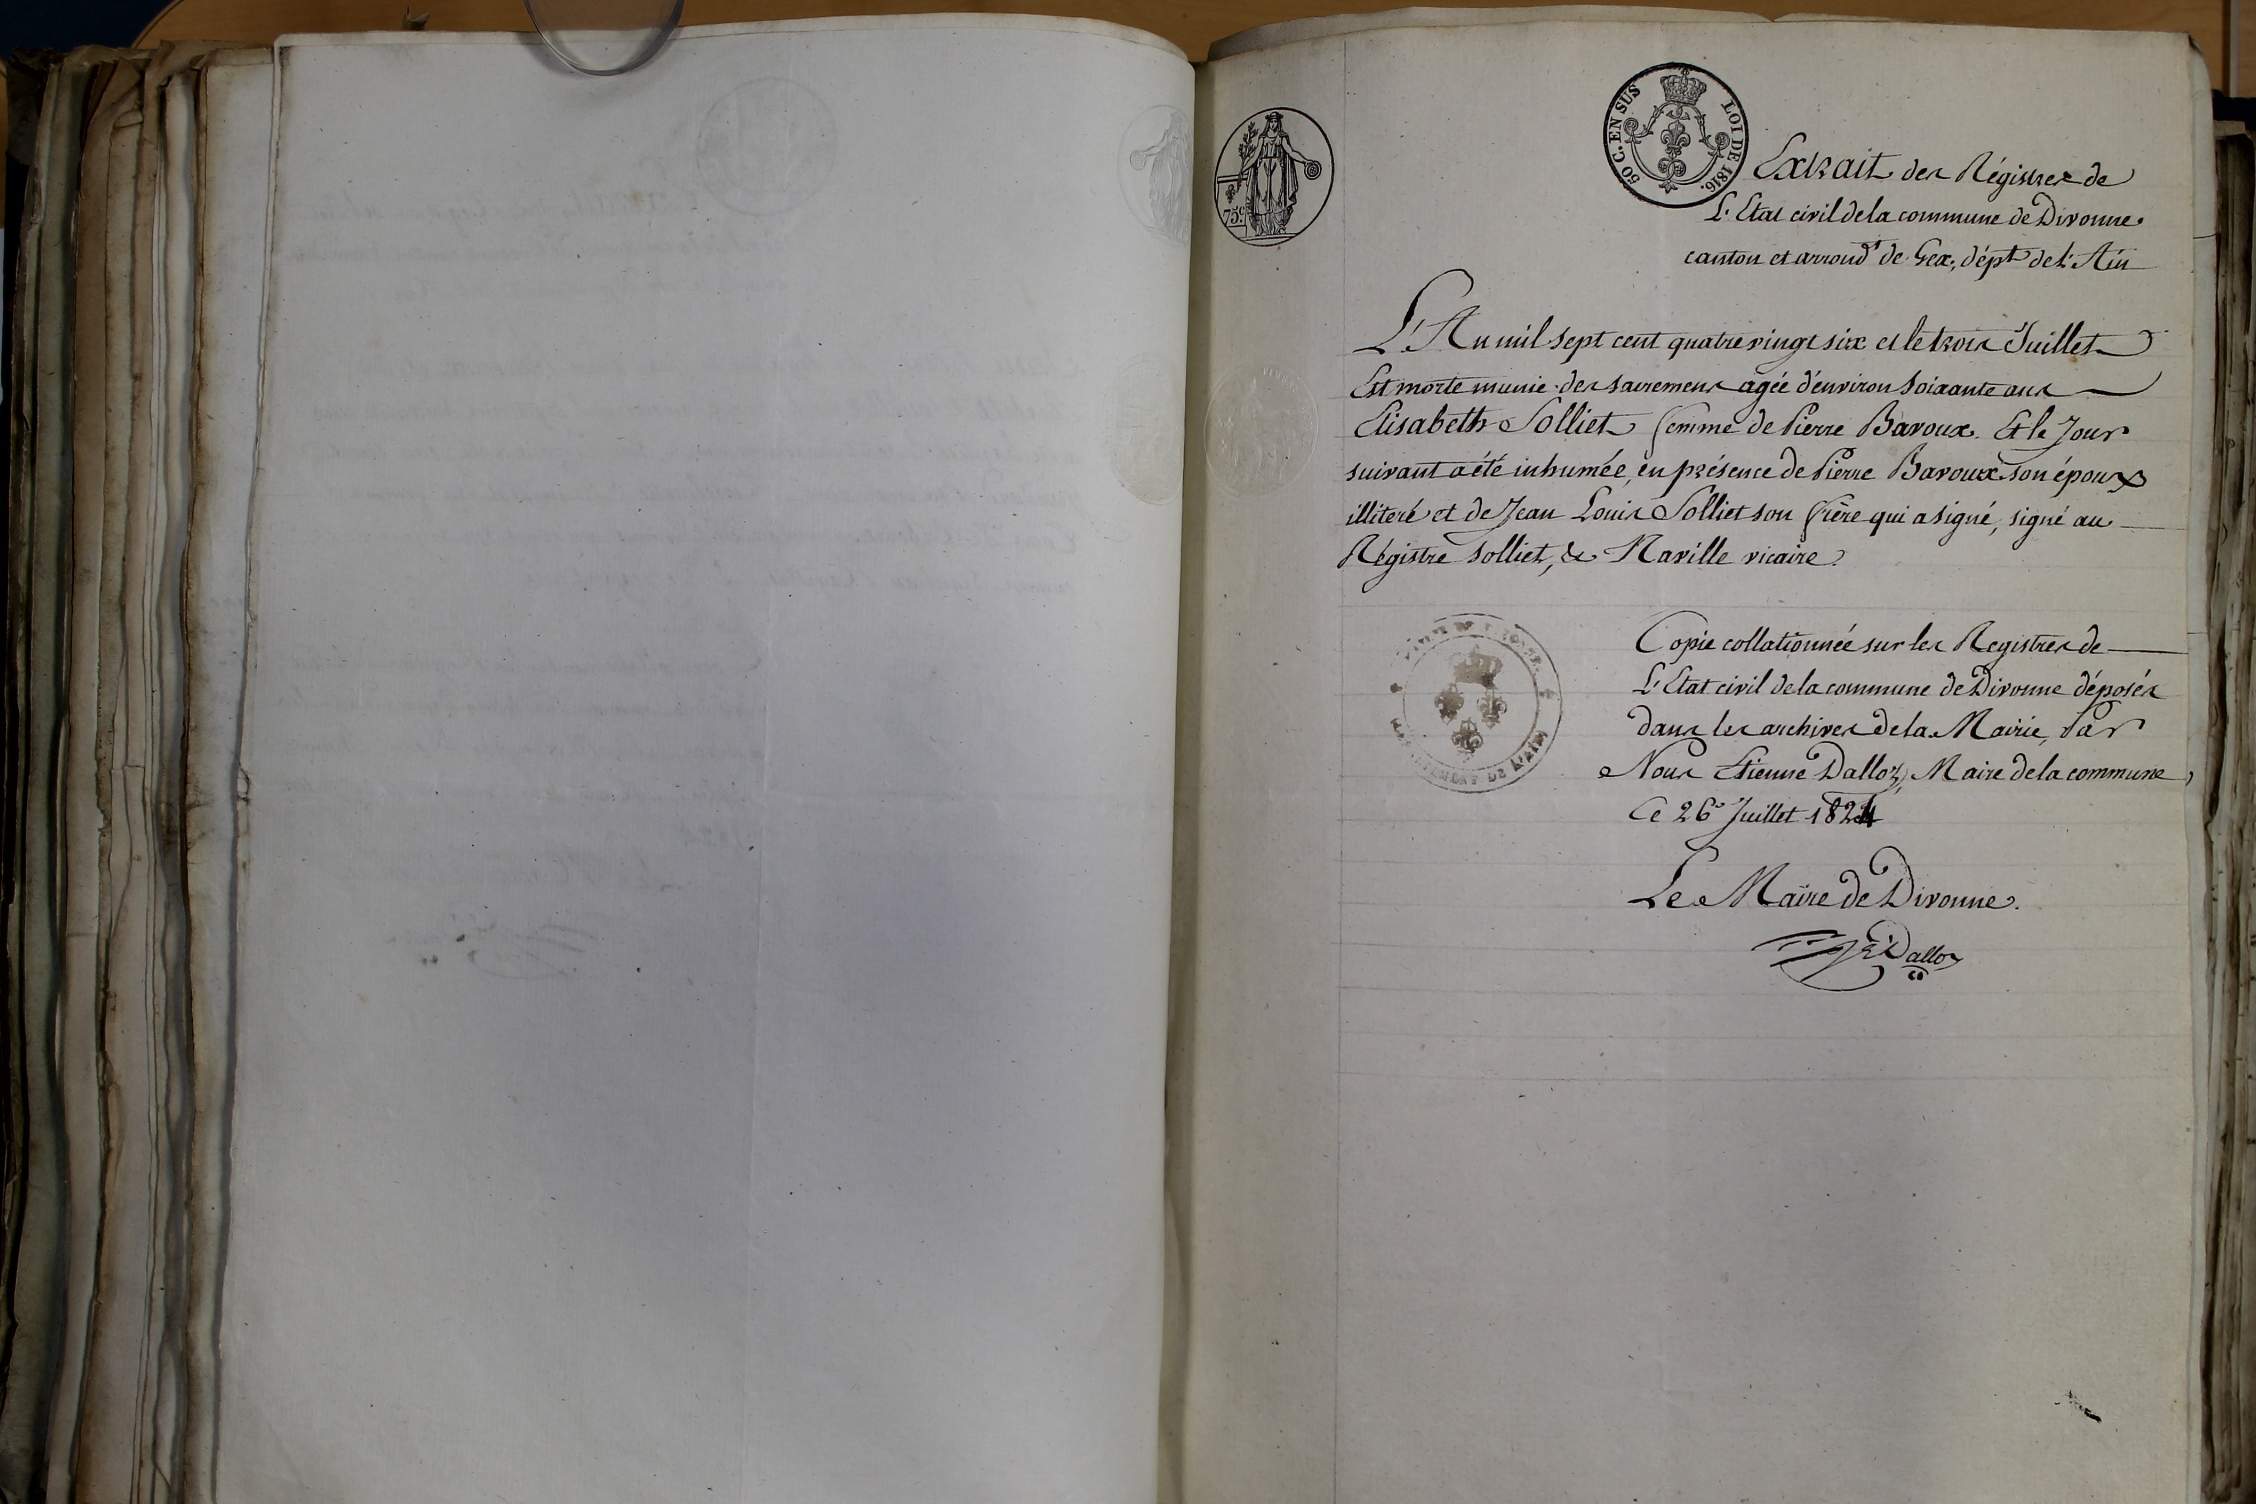 50 C. EN SUS
LOI DE 1816.
75c
Extrait des Régistres de
L'Etat civil de la commune de Divonne
canton et arrondt de Gex, dépt de L'Ain
L'An mil sept cent quatrevingt six et le trois Juillet
Est morte munie des sacremens agée d'environ Soixante ans
Elisabeth Solliet femme de Pierre Baroux. Et le Jour
suivant a été inhumée, en présence de Pierre Baroux son époux
illiteré et de Jean Louis Solliet son frère qui a signé, signé au
Régistre Solliet, & Naville vicaire.
Copie collationnée sur les Registres de
L'Etat civil de la commune de Divonne déposés
dans les archives de la Mairie, Par
Nous Etienne Dalloz, Maire de la commune,
Ce 26 Juillet 1824
Le Maire de Divonne.
E Dalloz
DE L'AIN